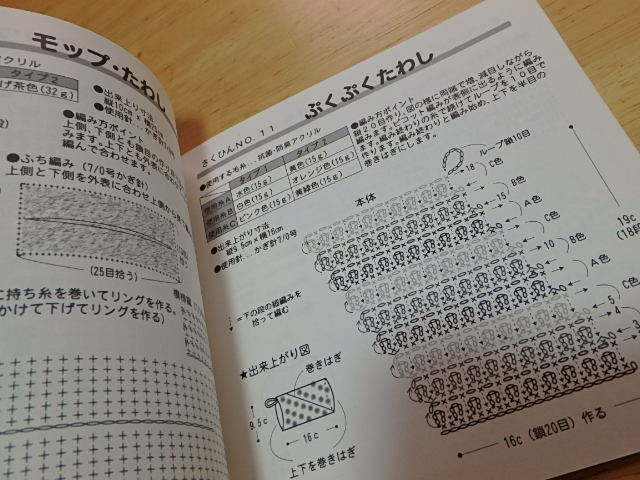 モップ・たわし
アクリル
タイプ2
げ茶色(32g)
●出来上り寸法
●使用針…かぎ針
●編み方ポイント
編んで合わせます。
●ふち編み (7/0号かぎ針)
上側と下側を外表に合わせ上側から
(25目拾う)
に持ち糸を巻いてリングを作る。
かけて下げてリングを作る)
ぷくぷくたわし
さくひんNO.11
●使用する毛糸…抗菌・防臭アクリル
タイプ1
タイプ2
使用糸A
水色(15g)
黄色(15g)
使用糸B
白色(15g)
オレンジ色(15g)
使用糸C
ピンク色(15g)
黄緑色(15g)
●出来上がり寸法
縦9.5cm×横16cm
●使用針…かぎ針7/0号
●編み方ポイント
鎖20目作り、図の様に両端で増、減目しながら
編みます。ポコット編みが表側に出るように編み
ます。編み終わりの糸で続けてループを10目で
作ります。編み終わりと編み始め、上下を半目の
巻きはぎにします。
ループ鎖10目
本体
18
C色
15
B色
C色
10
B色
A色
5
C色
4
A色
1
19c
(18段
=下の段の短編みを
拾って編む
★出来上がり図
巻きはぎ
9.5c
16c
上下を巻きはぎ
16c (鎖20目) 作る